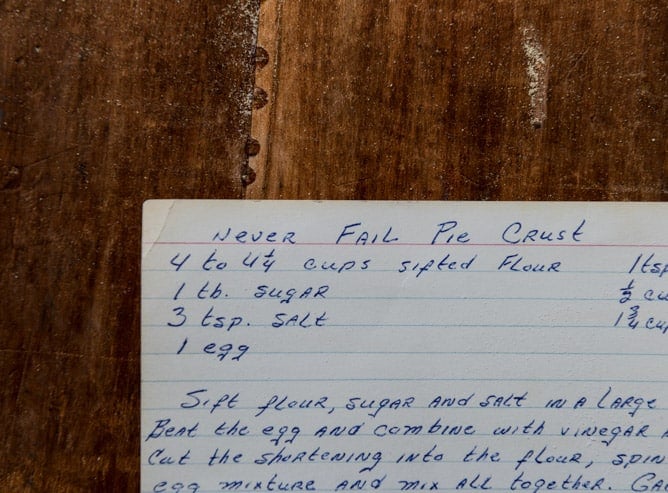 Never Fail Pie Crust
4 to 4 1/4 cups sifted flour 1 tsp
1 tb. sugar 1/2 cu
3 tsp. salt 1 3/4 cup
1 egg
Sift flour, sugar and salt in a large
Beat the egg and combine with vinegar
Cut the shortening into the flour, spin
egg mixture and mix all together. Ga